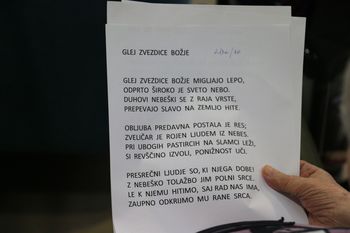 GLEJ ZVEZDICE BOŽJE
GLEJ ZVEZDICE BOŽJE MIGLJAJO LEPO,
ODPRTO ŠIROKO JE SVETO NEBO.
DUHOVI NEBEŠKI SE Z RAJA VRSTE,
PREPEVAJO SLAVO NA ZEMLJO HITE.
OBLJUBA PREDAVNA POSTALA JE RES;
ZVELIČAR JE ROJEN LJUDEM IZ NEBES.
PRI UBOGIH PASTIRCIH NA SLAMCI LEŽI,
SI REVŠČINO IZVOLI, PONIŽNOST UČI.
PRESREČNI LJUDJE SO, KI NJEGA DOBE!
Z NEBEŠKO TOLAŽBO JIM POLNI SRCE.
LE K NJEMU HITIMO, SAJ RAD NAS IMA,
ZAUPNO ODKRIMO MU RANE SRCA.